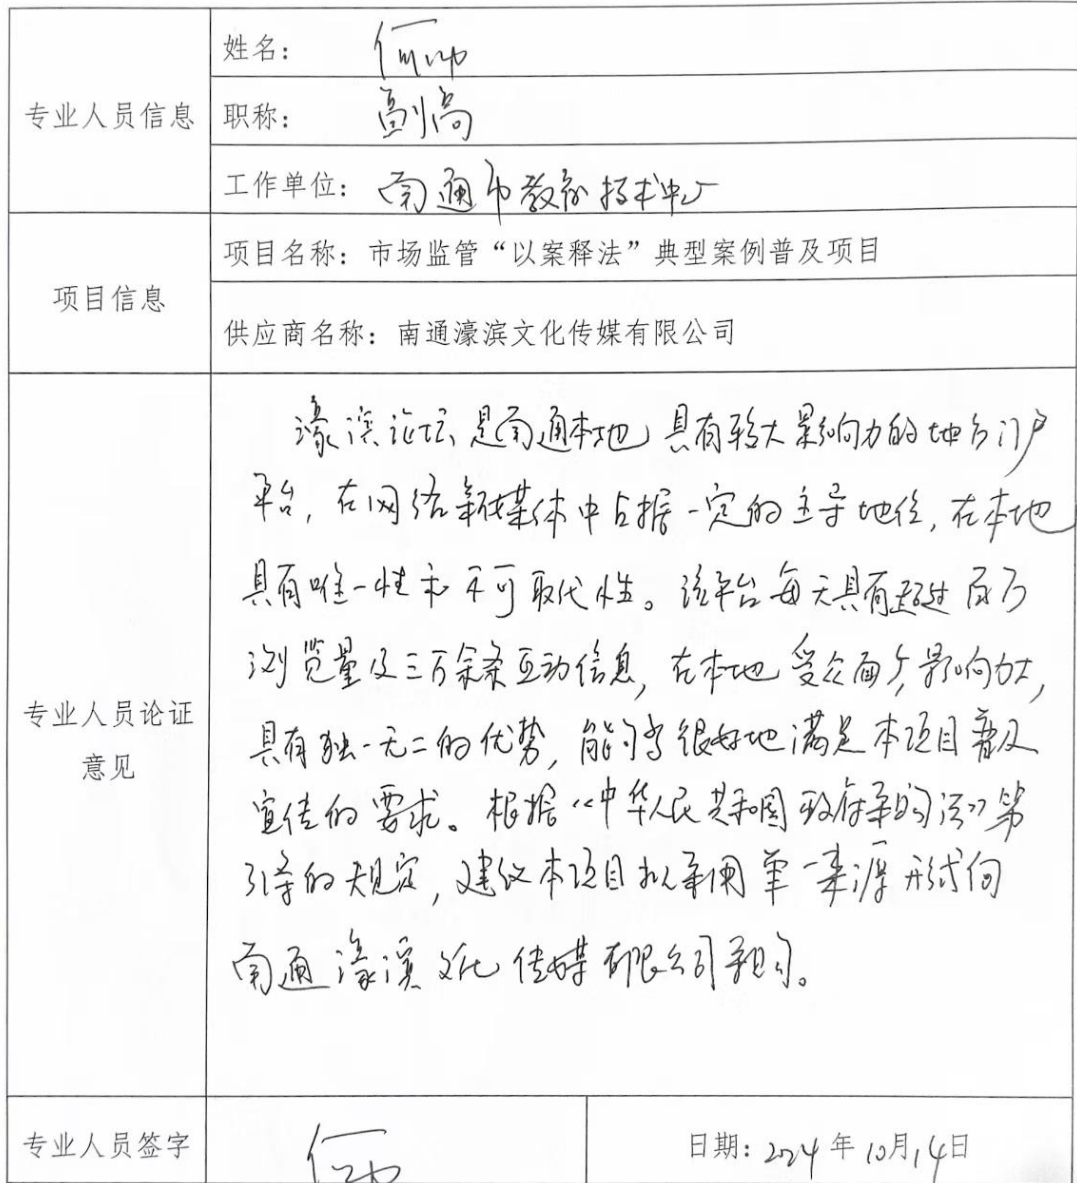 专业人员信息
姓名：何
职称：副高
工作单位：南通市教育技术中心
项目信息
项目名称：市场监管“以案释法”典型案例普及项目
供应商名称：南通濠滨文化传媒有限公司
专业人员论证
意见
濠滨论坛是南通本地具有较大影响力的地方门户
平台，在网络新媒体中占据一定的主导地位，在本地
具有唯一性和不可取代性。该平台每天具有超过百万
浏览量及三万余条互动信息，在本地受众面广，影响力大，
具有独一无二的优势，能够很好地满足本项目普及
宣传的要求。根据《中华人民共和国政府采购法》第
31条的规定，建议本项目拟采用单一来源形式向
南通濠滨文化传媒有限公司采购。
专业人员签字
何
日期：2024年10月14日